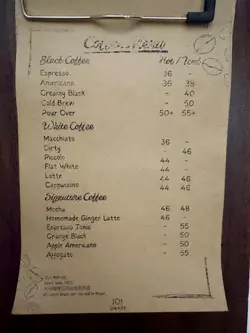 Coffee Menu
Black Coffee Hot / Iced
Espresso 36 -
Americano 36 38
Creamy Black - 40
Cold Brew - 50
Pour Over 50+ 55+
White Coffee
Macchiato 36 -
Dirty - 46
Piccolo 44 -
Flat White 44 -
Latte 44 46
Cappuccino 44 46
Signature Coffee
Mocha 46 48
Homemade Ginger Latte 46
Espresso Tonic - 55
Orange Black - 50
Apple Americano - 50
Affogato - 55